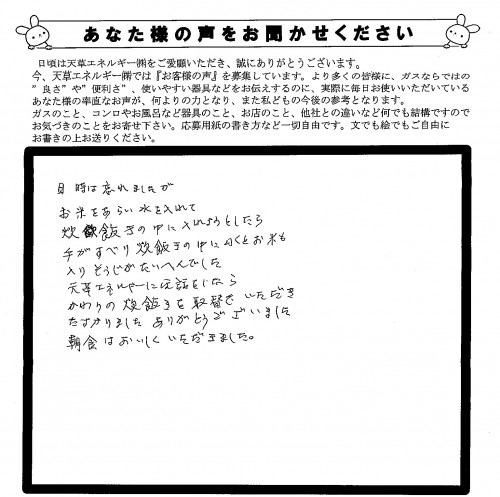 あなた様の声をお聞かせください
日頃は天草エネルギー㈱をご愛顧いただき、誠にありがとうございます。
今、天草エネルギー㈱では『お客様の声』を募集しています。より多くの皆様に、ガスならではの
”良さ”や”便利さ”、使いやすい器具などをお伝えするのに、実際に毎日お使いいただいている
あなた様の率直なお声が、何よりの力となり、また私どもの今後の参考となります。
ガスのこと、コンロやお風呂など器具のこと、お店のこと、他社との違いなど何でも結構ですので
お気づきのことをお寄せ下さい。応募用紙の書き方など一切自由です。文でも絵でもご自由に
お書きの上お送りください。
日時は忘れましたが
お米をあらい水を入れて
炊飯きの中に入れようとしたら
手がすべり炊飯きの中に水とお米も
入りそうじがたいへんでした
天草エネルギーに電話をしたら
かわりの炊飯きを取替をいただき
たすかりましたありがとうございました
朝食はおいしくいただきました。